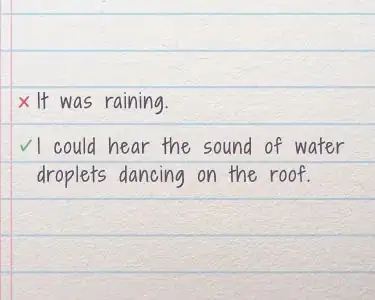 ✗ It was raining.
✓ I could hear the sound of water
droplets dancing on the roof.